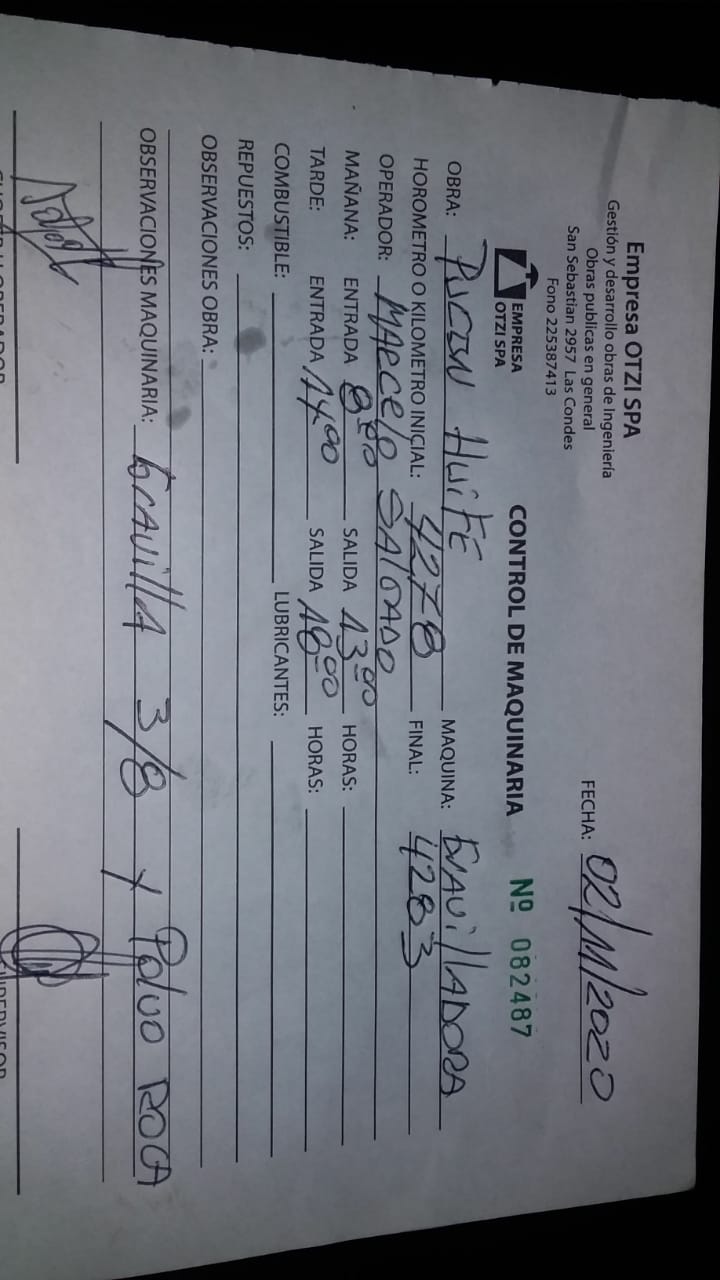 Empresa OTZI SPA
Gestión y desarrollo obras de Ingeniería
Obras publicas en general
San Sebastian 2957 Las Condes
Fono 225387413
FECHA: 02/11/2020
EMPRESA OTZI SPA
CONTROL DE MAQUINARIA Nº 082487
OBRA: PUCON HUIFE MAQUINA: GRAVILLADORA
HOROMETRO O KILOMETRO INICIAL: 4278 FINAL: 4283
OPERADOR: MARCELO SALGADO
MAÑANA: ENTRADA 8:00 SALIDA 13:00 HORAS:
TARDE: ENTRADA 14:00 SALIDA 18:00 HORAS:
COMBUSTIBLE: LUBRICANTES:
REPUESTOS:
OBSERVACIONES OBRA:
OBSERVACIONES MAQUINARIA: GRAVILLA 3/8 Y POLVO ROCA